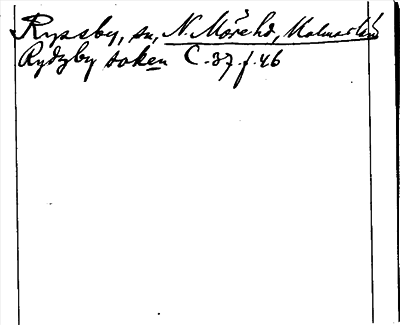 Ryssby, sn, N. Möre hd, Kalmar län
Rydzby soken C. 37 f. 46